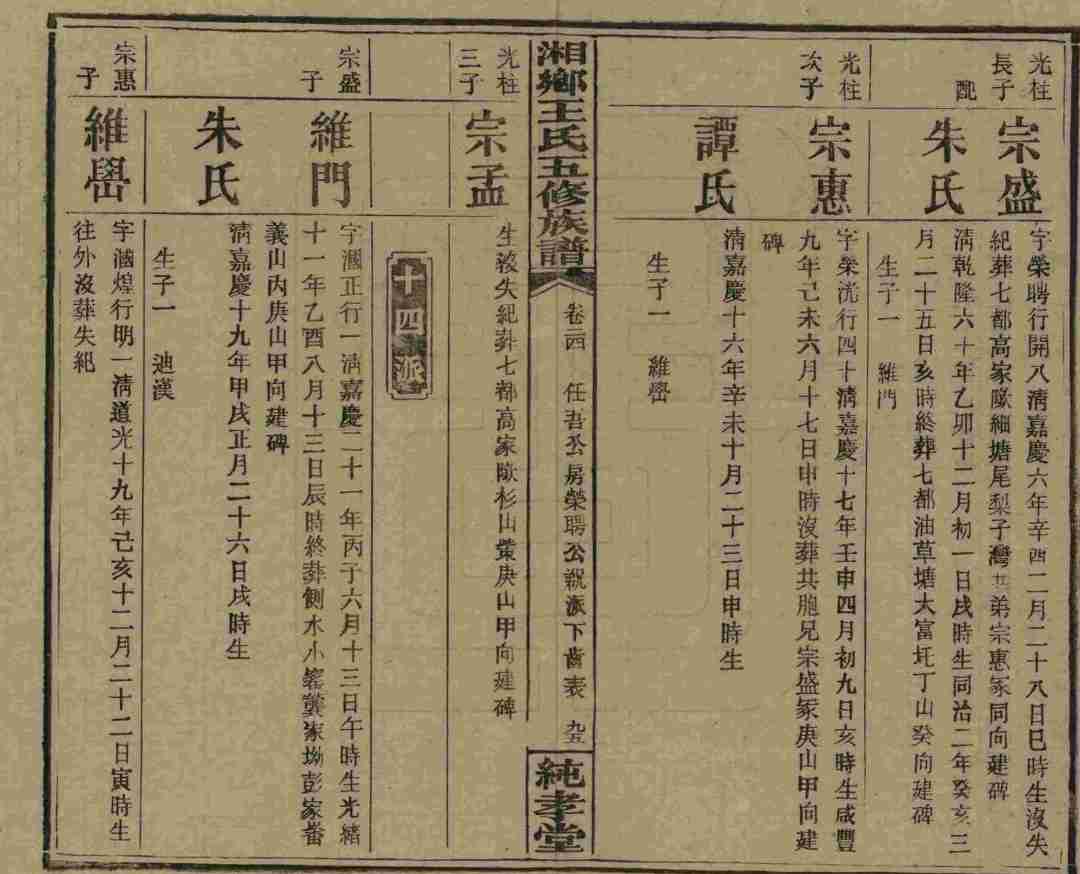 光柱
長子
宗盛
字榮聘行開八清嘉慶六年辛酉二月二十八日巳時生沒失
紀葬七都高家歐細塘尾梨子灣共弟宗惠冢同向建碑
配
朱氏
清乾隆六十年乙卯十二月初一日戌時生同治二年癸亥三
月二十五日亥時終葬七都油草塘大富圫丁山癸向建碑
生子一 維門
光柱
次子
宗惠
字榮洸行四十清嘉慶十七年壬申四月初九日亥時生咸豐
九年己未六月十七日申時沒葬共胞兄宗盛冢庚山甲向建
碑
譚氏
清嘉慶十六年辛未十月二十三日申時生
生子一 維嶨
湘鄉王氏五修族譜
卷二四 任吾公房榮聘公祝派下齒表 九五
純孝堂
光柱
三子
宗孟
生沒失紀葬七都高家歐杉山塋庚山甲向建碑
十四派
宗盛
子
維門
字國正行一清嘉慶二十一年丙子六月十三日午時生光緒
十一年乙酉八月十三日辰時終葬側水小窰龔家坳彭家薈
義山丙庚山甲向建碑
朱氏
清嘉慶十九年甲戌正月二十六日戌時生
生子一 迪漢
宗惠
子
維嶨
字國煌行明一清道光十九年己亥十二月二十二日寅時生
往外沒葬失紀